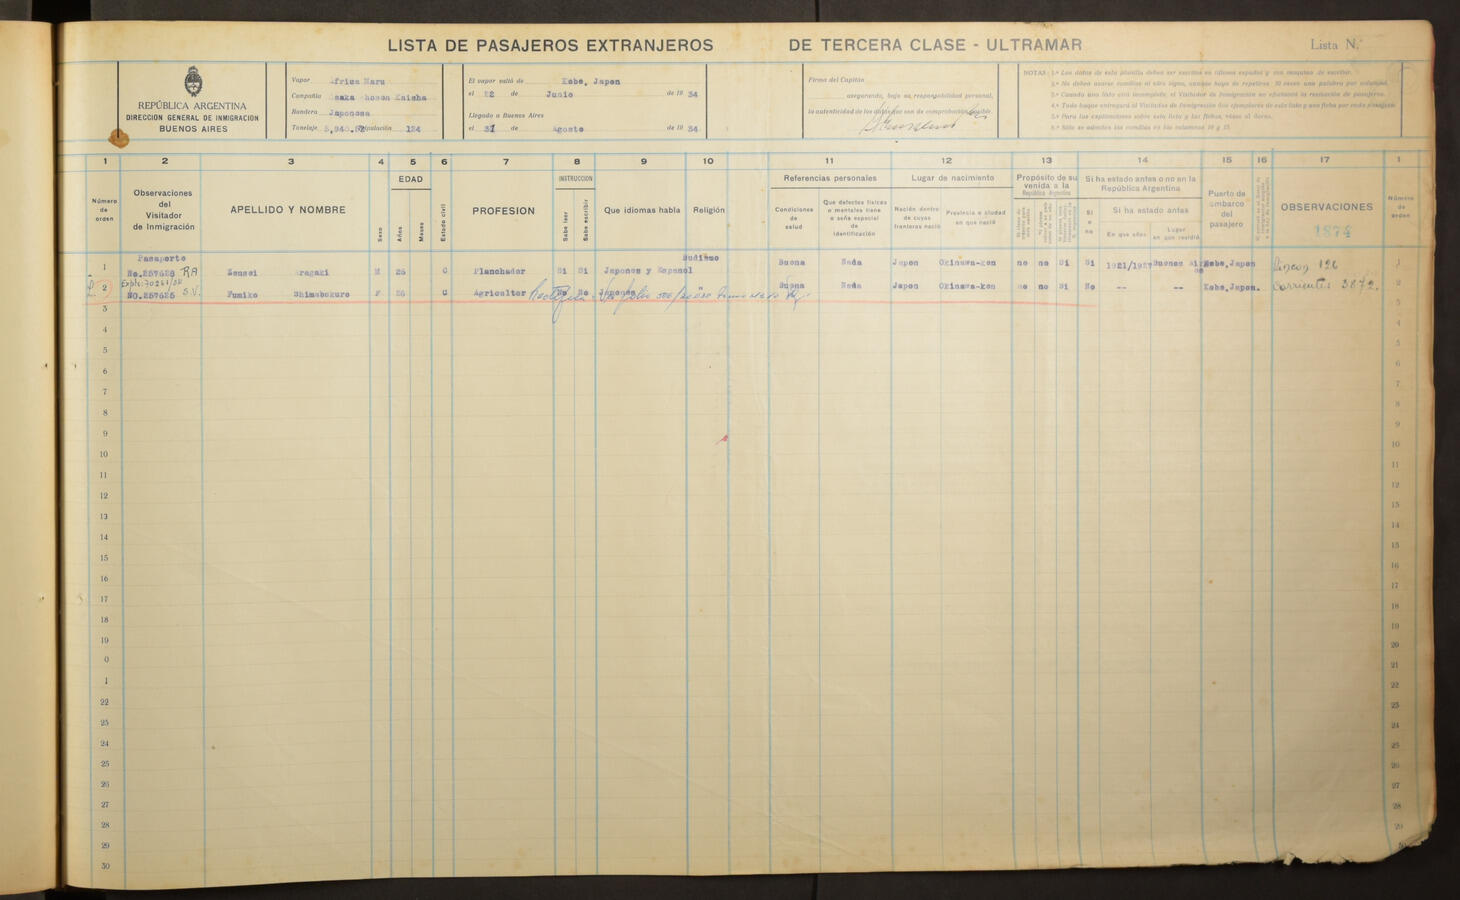 LISTA DE PASAJEROS EXTRANJEROS DE TERCERA CLASE - ULTRAMAR Lista N.º
REPÚBLICA ARGENTINA
DIRECCIÓN GENERAL DE INMIGRACIÓN
BUENOS AIRES
Vapor frica Maru
Compañía saka hosen Kaisha
Bandera Japonesa
Tonelaje Tripulación 124
El vapor salió de Kobe, Japon
el 22 de Junio de 1934
Llegado a Buenos Aires
el 31 de Agosto de 1934
Firma del Capitán
asegurando, bajo su responsabilidad personal,
la autenticidad de los datos que son de comprobación posible.
NOTAS: 1.º Los datos de esta planilla deben ser escritos en idioma español y con máquina de escribir.
2.º No deben usarse comillas ni otro signo, aunque haya de repetirse 30 veces una palabra por columna.
3.º Cuando una lista esté incompleta, el Visitador de Inmigración no efectuará la revisación de pasajeros.
4.º Todo buque entregará al Visitador de Inmigración dos ejemplares de esta lista y una ficha por cada pasajero.
5.º Para las explicaciones sobre esta lista y las fichas, véase al dorso.
6.º Sólo se admiten las comillas en las columnas 16 y 17.
1 2 3 4 5 6 7 8 9 10 11 12 13 14 15 16 17 1
Número de orden
Observaciones
del
Visitador
de Inmigración
APELLIDO Y NOMBRE
Sexo
EDAD
Años
Meses
Estado civil
PROFESION
INSTRUCCION
Sabe leer
Sabe escribir
Que idiomas habla
Religión
Referencias personales
Condiciones
de
salud
Que defectos físicos
o mentales tiene
o seña especial
de
identificación
Lugar de nacimiento
Nación dentro
de cuyas
fronteras nació
Provincia o ciudad
en que nació
Propósito de su
venida a la
República Argentina
Si ha estado antes o no en la
República Argentina
Si
o
no
Si ha estado antes
En que años
Lugar
en que residió
Puerto de
embarco
del
pasajero
OBSERVACIONES
1874
Número
de
orden
Pasaporte Budismo
1 No.257628 RA Sensei Aragaki M 26 C Planchador Si Si Japones y Espanol Buena Nada Japon Okinawa-ken no no Si Si 1921/1927 Buenos Aires Kobe,Japon Rincon 126 1
2 NO.257625 S.V. Fumiko Shimabukuro F 26 C Agricultor No No Japones " Buena Nada Japon Okinawa-ken no no Si No -- -- Kobe,Japon. Corrientes 3872. 2
3
4
5
6
7
8
9
10
11
12
13
14
15
16
17
18
19
0
1
22
23
24
25
26
27
28
29
30